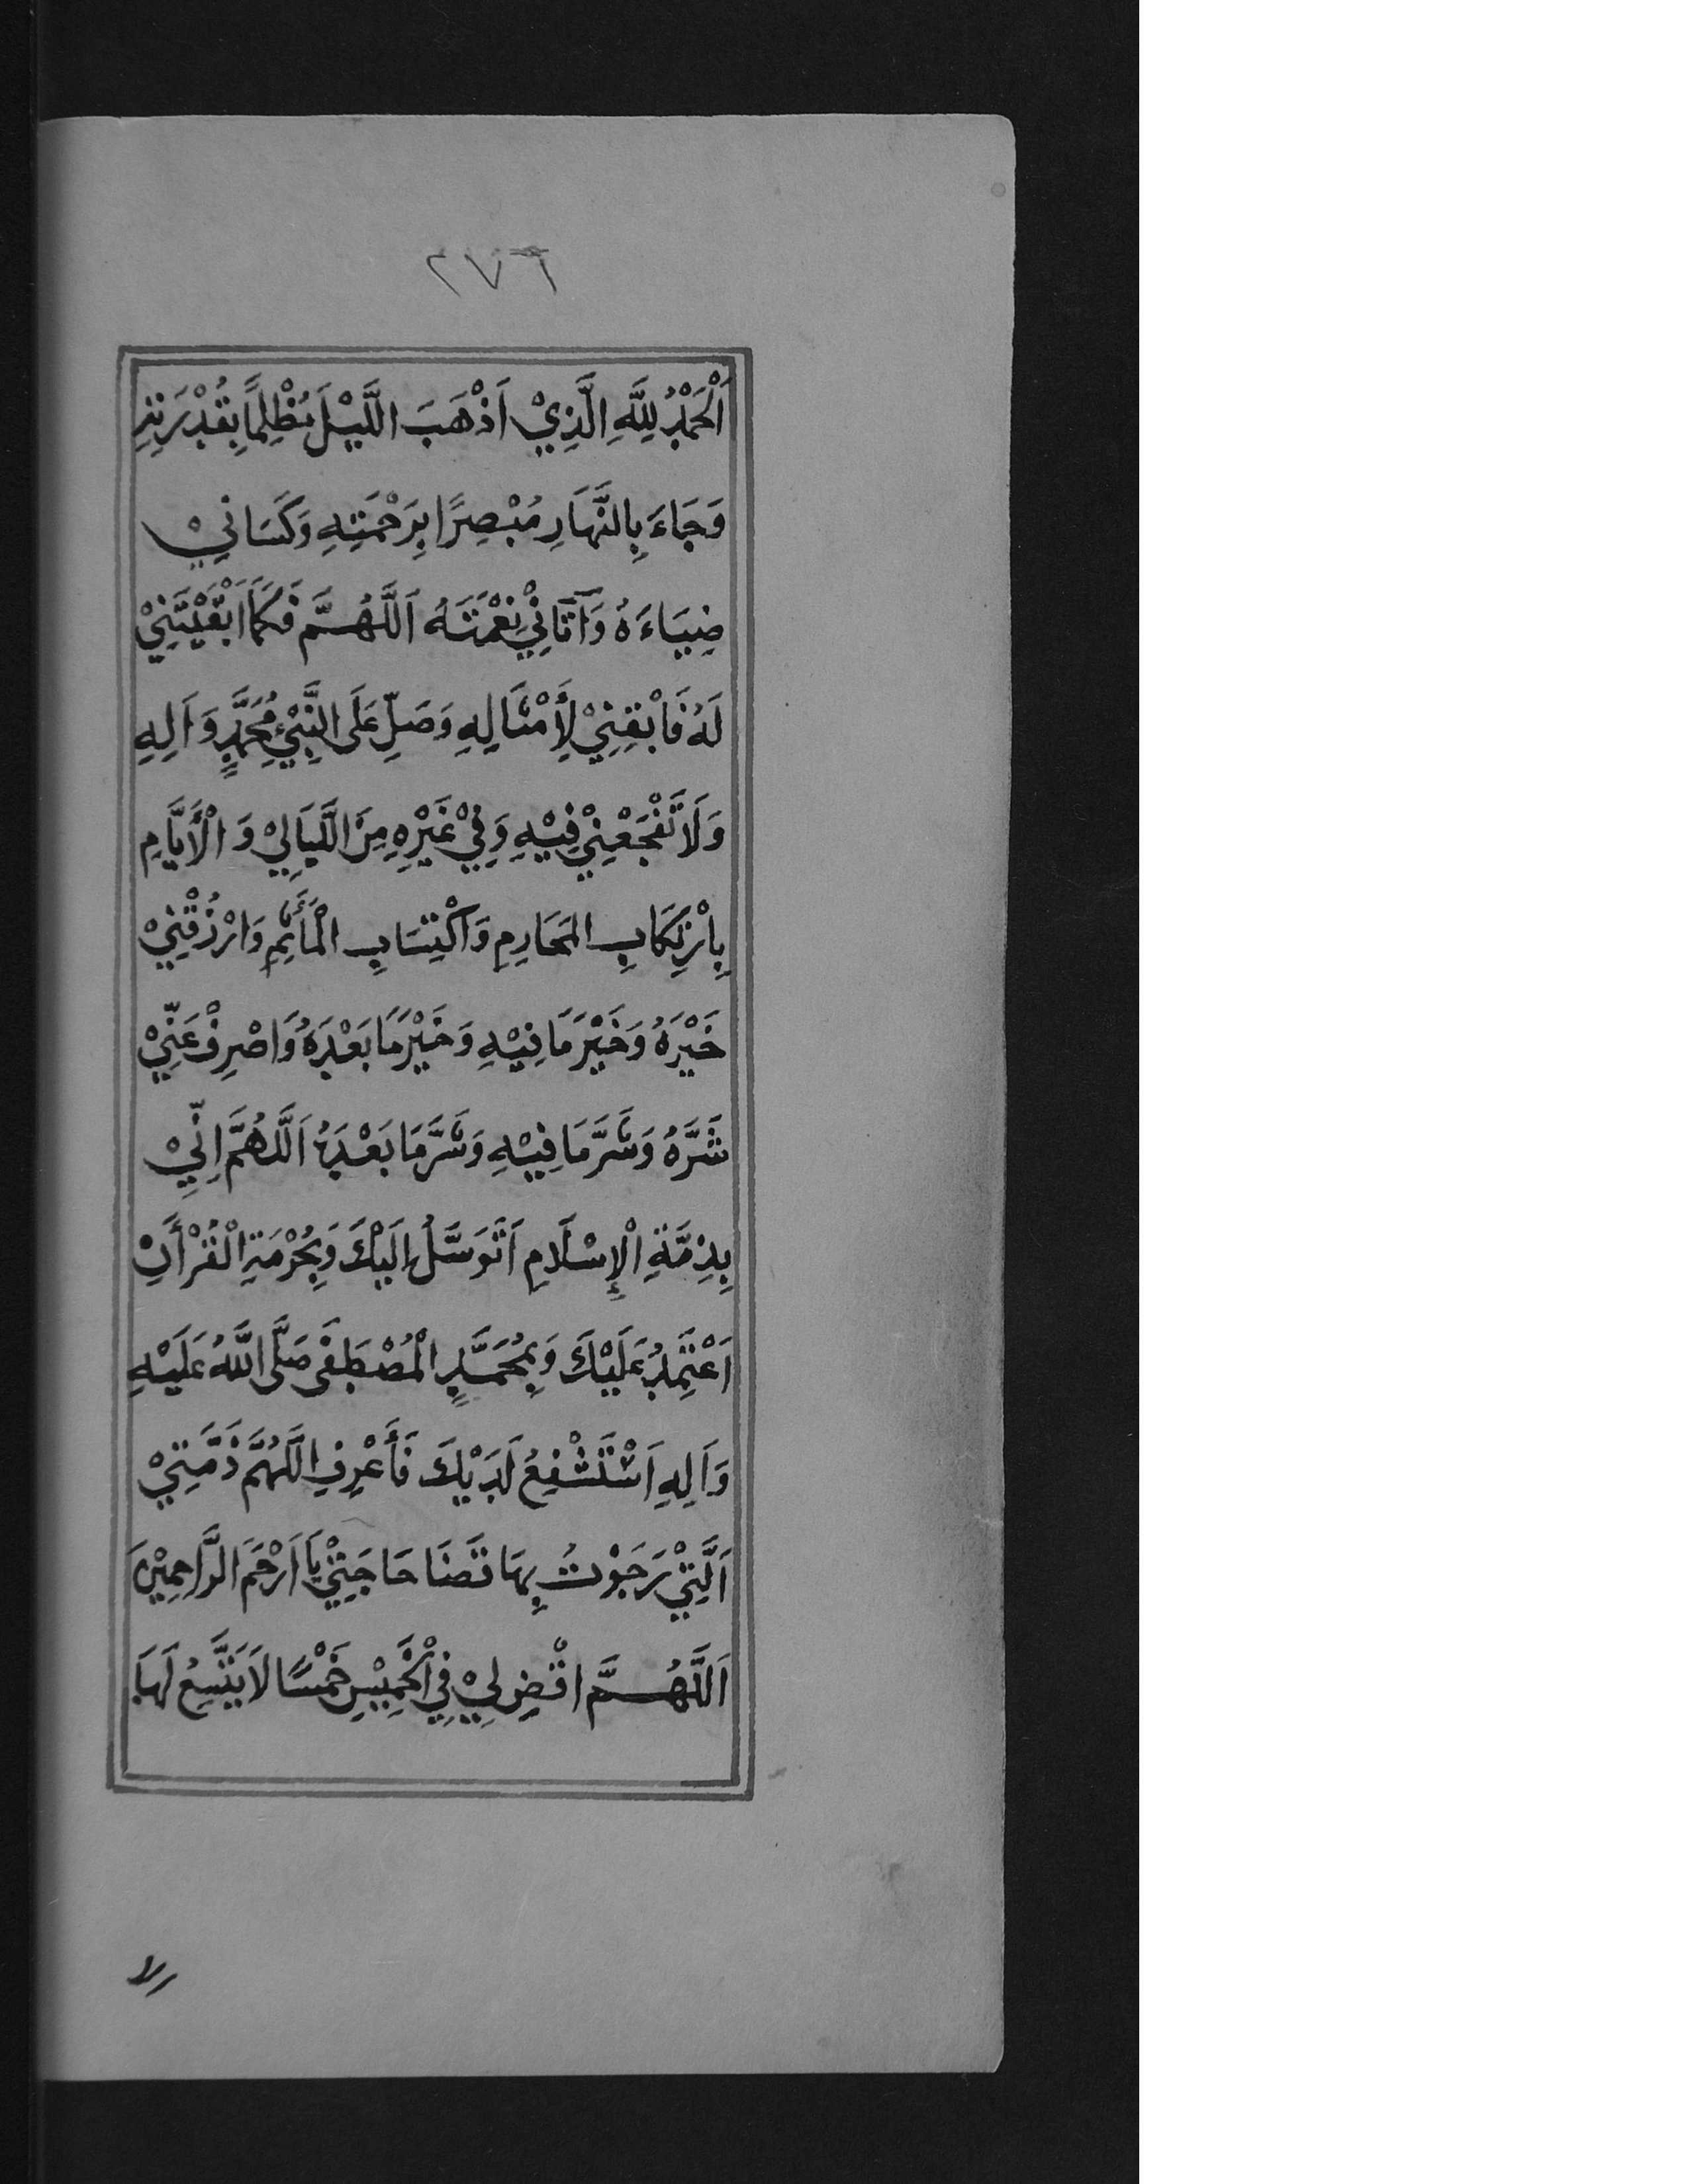 ٢٧٦
اَلْحَمْدُ لِلَّهِ الَّذِيْ اَذْهَبَ اللَّيْلَ مُظْلِمًا بِقُدْرَتِهِ
وَجَاءَ بِالنَّهَارِ مُبْصِرًا بِرَحْمَتِهِ وَكَسَانِيْ
ضِيَاءَهُ وَآتَانِيْ نِعْمَتَهُ اَللَّهُمَّ فَكَمَا اَبْقَيْتَنِيْ
لَهُ فَابْقِنِيْ لِأَمْثَالِهِ وَصَلِّ عَلَى النَّبِيْءِ مُحَمَّدٍ وَاَلِهِ
وَلَا تَفْجَعْنِيْ فِيْهِ وَفِيْ غَيْرِهِ مِنَ اللَّيَالِيْ وَ الْأَيَّامِ
بِارْتِكَابِ المَحَارِمِ وَاكْتِسَابِ الْمَأَثِمِ وَارْزُقْنِيْ
خَيْرَهُ وَخَيْرَ مَا فِيْهِ وَخَيْرَ مَا بَعْدَهُ وَاصْرِفْ عَنِّيْ
شَرَّهُ وَشَرَّ مَا فِيْهِ وَشَرَّ مَا بَعْدَهُ اَللَّهُمَّ اِنِّيْ
بِذِمَّةِ الْإِسْلَامِ اَتَوَسَّلُ اِلَيْكَ وَبِحُرْمَةِ الْقُرْأَنِ
اَعْتَمِدُ عَلَيْكَ وَبِمُحَمَّدٍ الْمُصْطَفَى صَلَّى اللَّهُ عَلَيْهِ
وَاَلِهِ اَسْتَشْفِعُ لَدَيْكَ فَأَعْرِفِ اللَّهُمَّ ذَمَّتِيْ
اَلَّتِيْ رَجَوْتُ بِهَا قَضَا حَاجَتِيْ يَا اَرْحَمَ الرَّاحِمِيْنَ
اَللَّهُمَّ اقْضِ لِيْ فِي الْخَمِيْسِ خَمْسًا لَا يَتَّسِعُ لَهَا